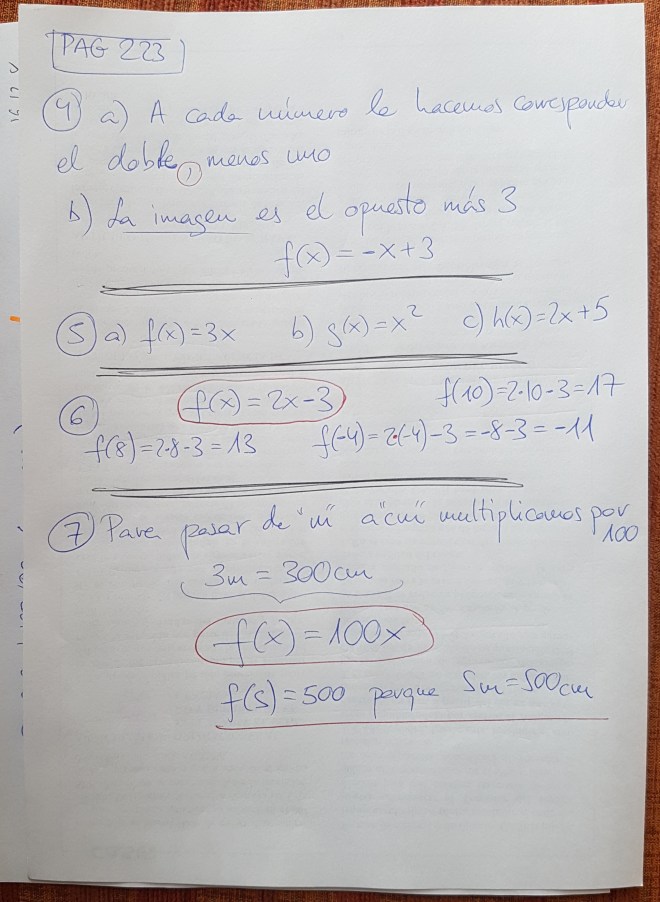 PAG 223
4 a) A cada número le hacemos corresponder
el doble, menos uno
b) La imagen es el opuesto más 3
f(x) = -x+3
5 a) f(x)=3x b) g(x)=x² c) h(x)=2x+5
6 f(x)=2x-3 f(10)=2·10-3=17
f(8)=2·8-3=13 f(-4)=2·(-4)-3=-8-3=-11
7 Para pasar de "m" a "cm" multiplicamos por
100
3m = 300cm
f(x)=100x
f(5)=500 porque 5m=500cm